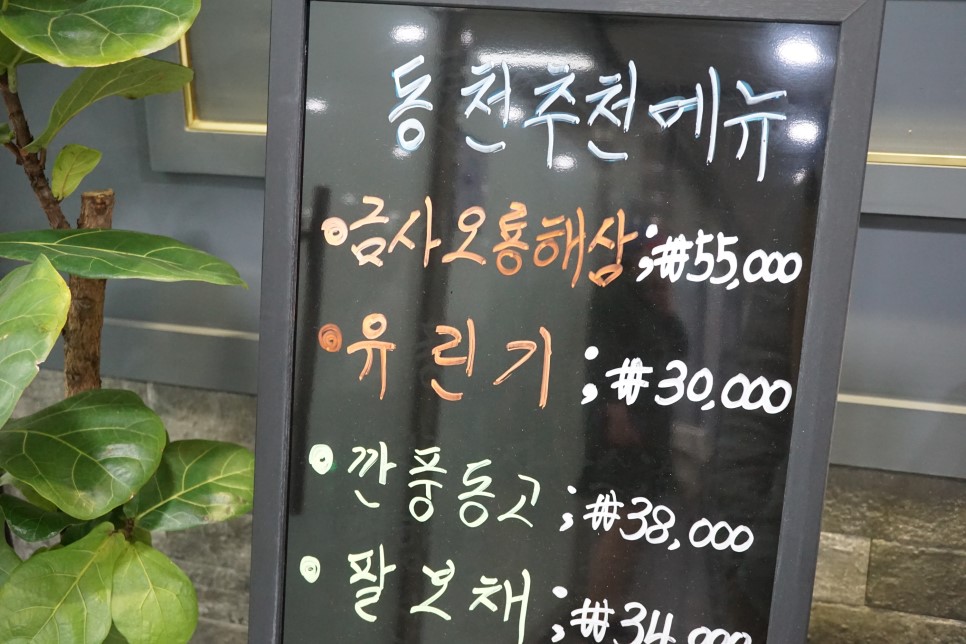 동천추천메뉴
금사오룡해삼;₩55,000
유린기;₩30,000
깐풍동고;₩38,000
팔보채;₩34,000